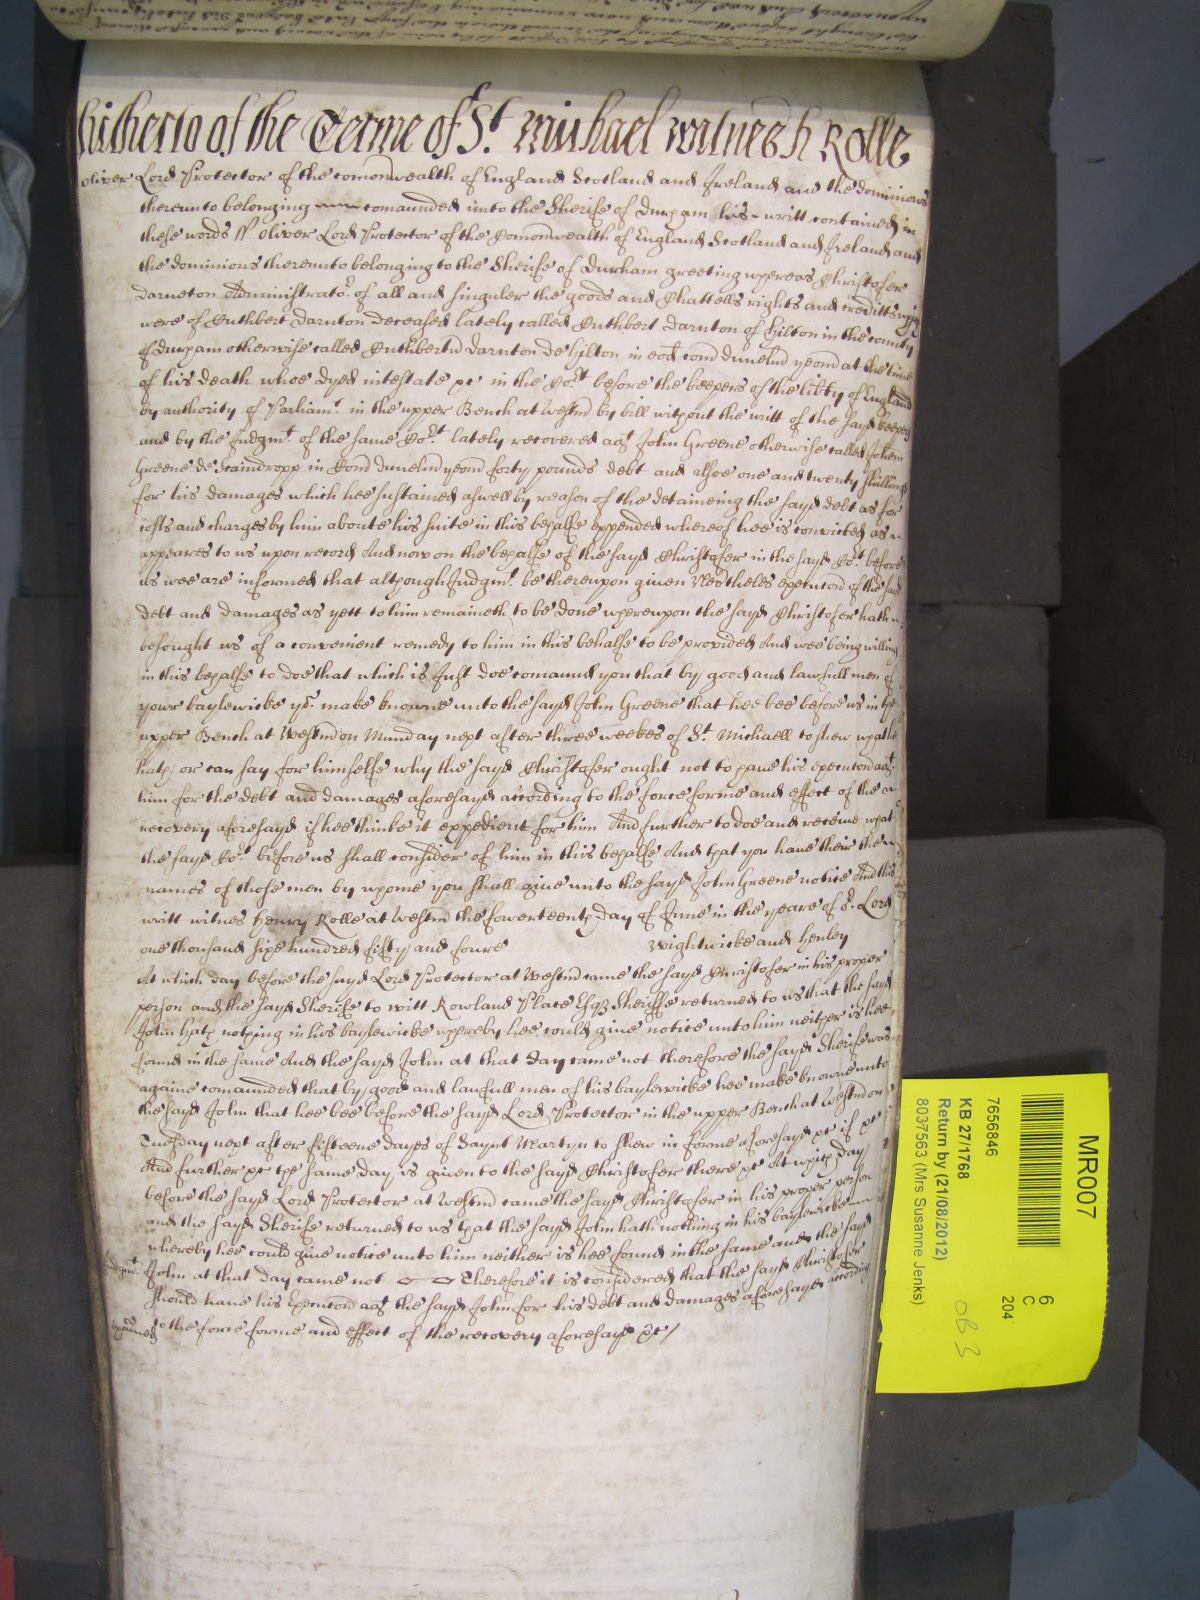 hitherto of the Terme of St. Michael witnes h Rolle
Oliver Lord Protector of the comonwealth of England Scotland and Ireland and the dominions
thereunto belonging comaunded unto the Sherife of Durham his writt contained in
these words ss Oliver Lord Protector of the Comonwealth of England Scotland and Ireland and
the dominions thereunto belonging to the Sherife of Durham greeting whereas Christofer
Darneton Administrator of all and singuler the goods and Chattells rights and creditts wch
were of Cuthbert Darnton deceased lately called Cuthbert Darnton of Hilton in the county
of Durham otherwise called Cuthbertu Darnton de Hilton in eod com dunelm yeom at the time
of his death whoe dyed intestate &c in the Cort before the keepers of the libty of England
by authority of Parliamt. in the upper Bench at Westm by bill without the writt of the sayd keepers
and by the Judgmt. of the same Cort lately recovered agt John Greene otherwise called Johem
Greene de Staindropp in Com dunelm yeom forty pounds debt and alsoe one and twenty shillings
for his damages which hee sustained aswell by reason of the detaineing the sayd debt as for
costs and charges by him aboute his suite in this behalfe expended whereof hee is convicted as
appeares to us upon record And now on the behalfe of the sayd Christofer in the sayd Cort before
us wee are informed that although Judgmt. be thereupon given Nevtheles execucon of the sayd
debt and damages as yett to him remaineth to be done whereupon the sayd Christofer hath
besought us of a convenient remedy to him in this behalfe to be provided And wee being willing
in this behalfe to doe that which is Just doe comaund you that by good and lawfull men of
your baylewicke yor. make knowne unto the sayd John Greene that hee bee before us in the
upper Bench at Westm on Munday next after three weekes of St. Michaell to shew what he
hath or can say for himselfe why the sayd Christofer ought not to have his execucon agt
him for the debt and damages aforesayd according to the force forme and effect of the
recovery aforesayd if hee thinke it expedient for him And further to doe and receive what
the sayd Cort before us shall consider of him in this behalfe And that you have their then
names of those men by whome you shall give unto the sayd John Greene notice And this
writt witnes Henry Rolle at Westm the fowerteenth day of June in the yeare of or. Lord
one thousand sixe hundred fifty and foure Wightwicke and Henley
At which day before the sayd Lord Protector at Westm came the sayd Christofer in his proper
person and the sayd Sherife to witt Rowland Place Esqz Sheriffe returned to us that the sayd
John hath nothing in his baylewicke whereby hee could give notice unto him neither is hee
found in the same And the sayd John at that day came not therefore the sayd Sherife was
againe comaunded that by good and lawfull men of his baylewicke hee make knowne unto
the sayd John that hee bee before the sayd Lord Protector in the upper Bench at Westm on
Tuesday next after fifteene dayes of Saynt Martyn to shew in forme aforesayd &c if &c
And further &c the same day is given to the sayd Christofer there &c At which day
before the sayd Lord Protector at Westm came the sayd Christofer in his proper person
and the sayd Sherife returned to us that the sayd John hath nothing in his baylewicke
whereby hee could give notice unto him neither is hee found in the same and the sayd
Judgmt. John at that day came not Therefore it is considered that the sayd Christofer
should have his Execucon agt the sayd John for his debt and damages aforesayd according
to the force forme and effect of the recovery aforesayd &c/
MR007
7656846
KB 27/1768
Return by (21/08/2012)
8037563 (Mrs Susanne Jenks)
6
C
204
OB3